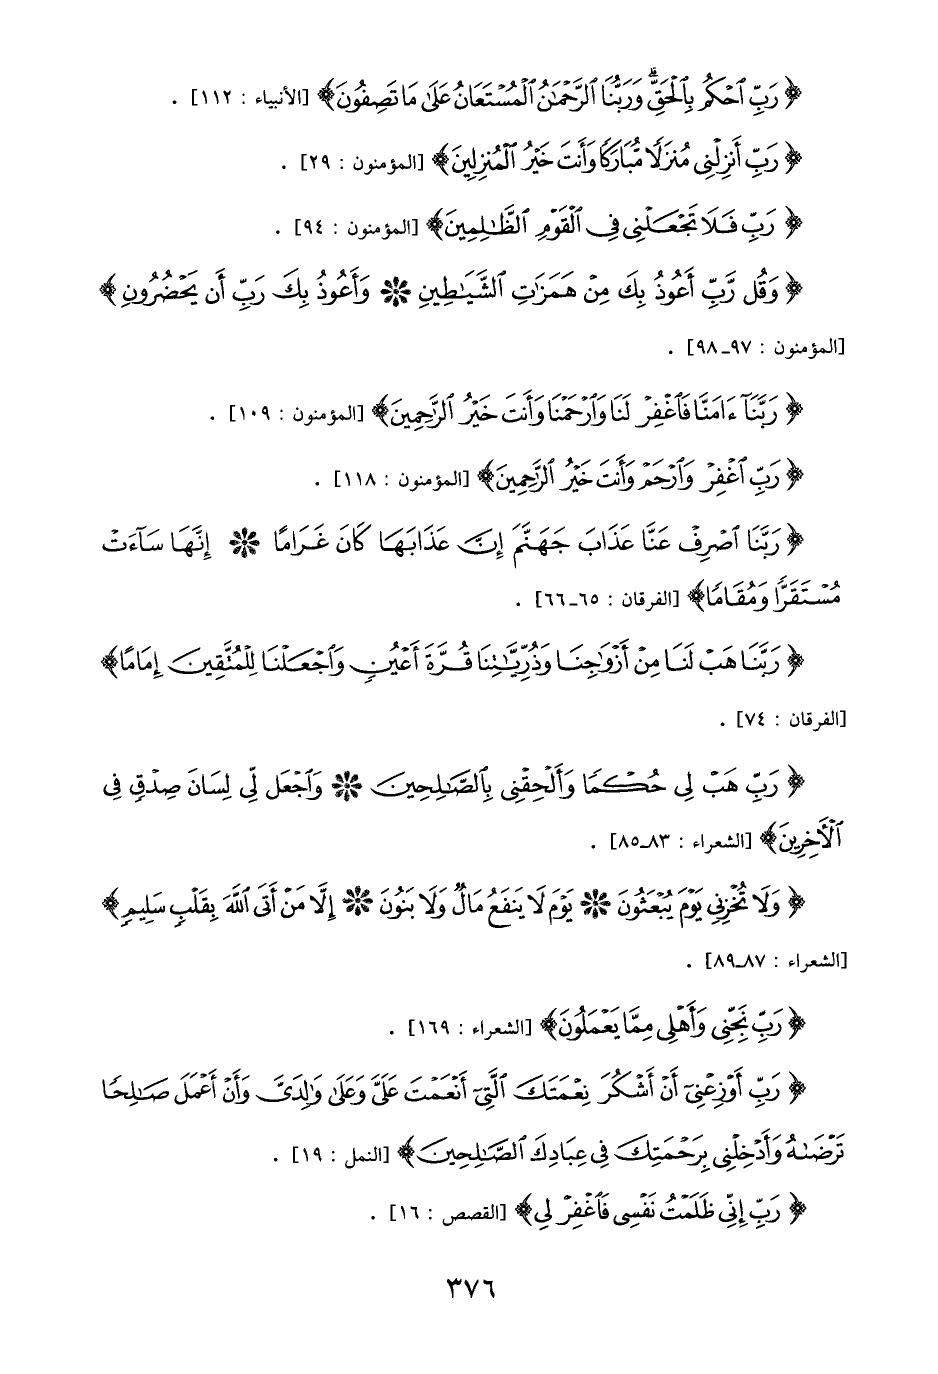 ﴿ رَبِّ ٱحْكُم بِٱلْحَقِّ ۗ وَرَبُّنَا ٱلرَّحْمَٰنُ ٱلْمُسْتَعَانُ عَلَىٰ مَا تَصِفُونَ﴾ [الأنبياء : ١١٢] .
﴿ رَبِّ أَنزِلْنِى مُنزَلًا مُّبَارَكًا وَأَنتَ خَيْرُ ٱلْمُنزِلِينَ﴾ [المؤمنون : ٢٩] .
﴿ رَبِّ فَلَا تَجْعَلْنِى فِى ٱلْقَوْمِ ٱلظَّٰلِمِينَ﴾ [المؤمنون : ٩٤] .
﴿ وَقُل رَّبِّ أَعُوذُ بِكَ مِنْ هَمَزَٰتِ ٱلشَّيَٰطِينِ ❊ وَأَعُوذُ بِكَ رَبِّ أَن يَحْضُرُونِ ﴾
[المؤمنون : ٩٧ـ٩٨] .
﴿ رَبَّنَآ ءَامَنَّا فَٱغْفِرْ لَنَا وَٱرْحَمْنَا وَأَنتَ خَيْرُ ٱلرَّٰحِمِينَ﴾ [المؤمنون : ١٠٩] .
﴿ رَبِّ ٱغْفِرْ وَٱرْحَمْ وَأَنتَ خَيْرُ ٱلرَّٰحِمِينَ﴾ [المؤمنون : ١١٨] .
﴿ رَبَّنَا ٱصْرِفْ عَنَّا عَذَابَ جَهَنَّمَ إِنَّ عَذَابَهَا كَانَ غَرَامًا ❊ إِنَّهَا سَآءَتْ
مُسْتَقَرًّا وَمُقَامًا﴾ [الفرقان : ٦٥ـ٦٦] .
﴿ رَبَّنَا هَبْ لَنَا مِنْ أَزْوَٰجِنَا وَذُرِّيَّٰتِنَا قُرَّةَ أَعْيُنٍ وَٱجْعَلْنَا لِلْمُتَّقِينَ إِمَامًا﴾
[الفرقان : ٧٤] .
﴿ رَبِّ هَبْ لِى حُكْمًا وَأَلْحِقْنِى بِٱلصَّٰلِحِينَ ❊ وَٱجْعَل لِّى لِسَانَ صِدْقٍ فِى
ٱلْءَاخِرِينَ﴾ [الشعراء : ٨٣ـ٨٥] .
﴿ وَلَا تُخْزِنِى يَوْمَ يُبْعَثُونَ ❊ يَوْمَ لَا يَنفَعُ مَالٌ وَلَا بَنُونَ ❊ إِلَّا مَنْ أَتَى ٱللَّهَ بِقَلْبٍ سَلِيمٍ﴾
[الشعراء : ٨٧ـ٨٩] .
﴿ رَبِّ نَجِّنِى وَأَهْلِى مِمَّا يَعْمَلُونَ﴾ [الشعراء : ١٦٩] .
﴿ رَبِّ أَوْزِعْنِىٓ أَنْ أَشْكُرَ نِعْمَتَكَ ٱلَّتِىٓ أَنْعَمْتَ عَلَىَّ وَعَلَىٰ وَٰلِدَىَّ وَأَنْ أَعْمَلَ صَٰلِحًا
تَرْضَىٰهُ وَأَدْخِلْنِى بِرَحْمَتِكَ فِى عِبَادِكَ ٱلصَّٰلِحِينَ﴾ [النمل : ١٩] .
﴿ رَبِّ إِنِّى ظَلَمْتُ نَفْسِى فَٱغْفِرْ لِى﴾ [القصص : ١٦] .
٣٧٦